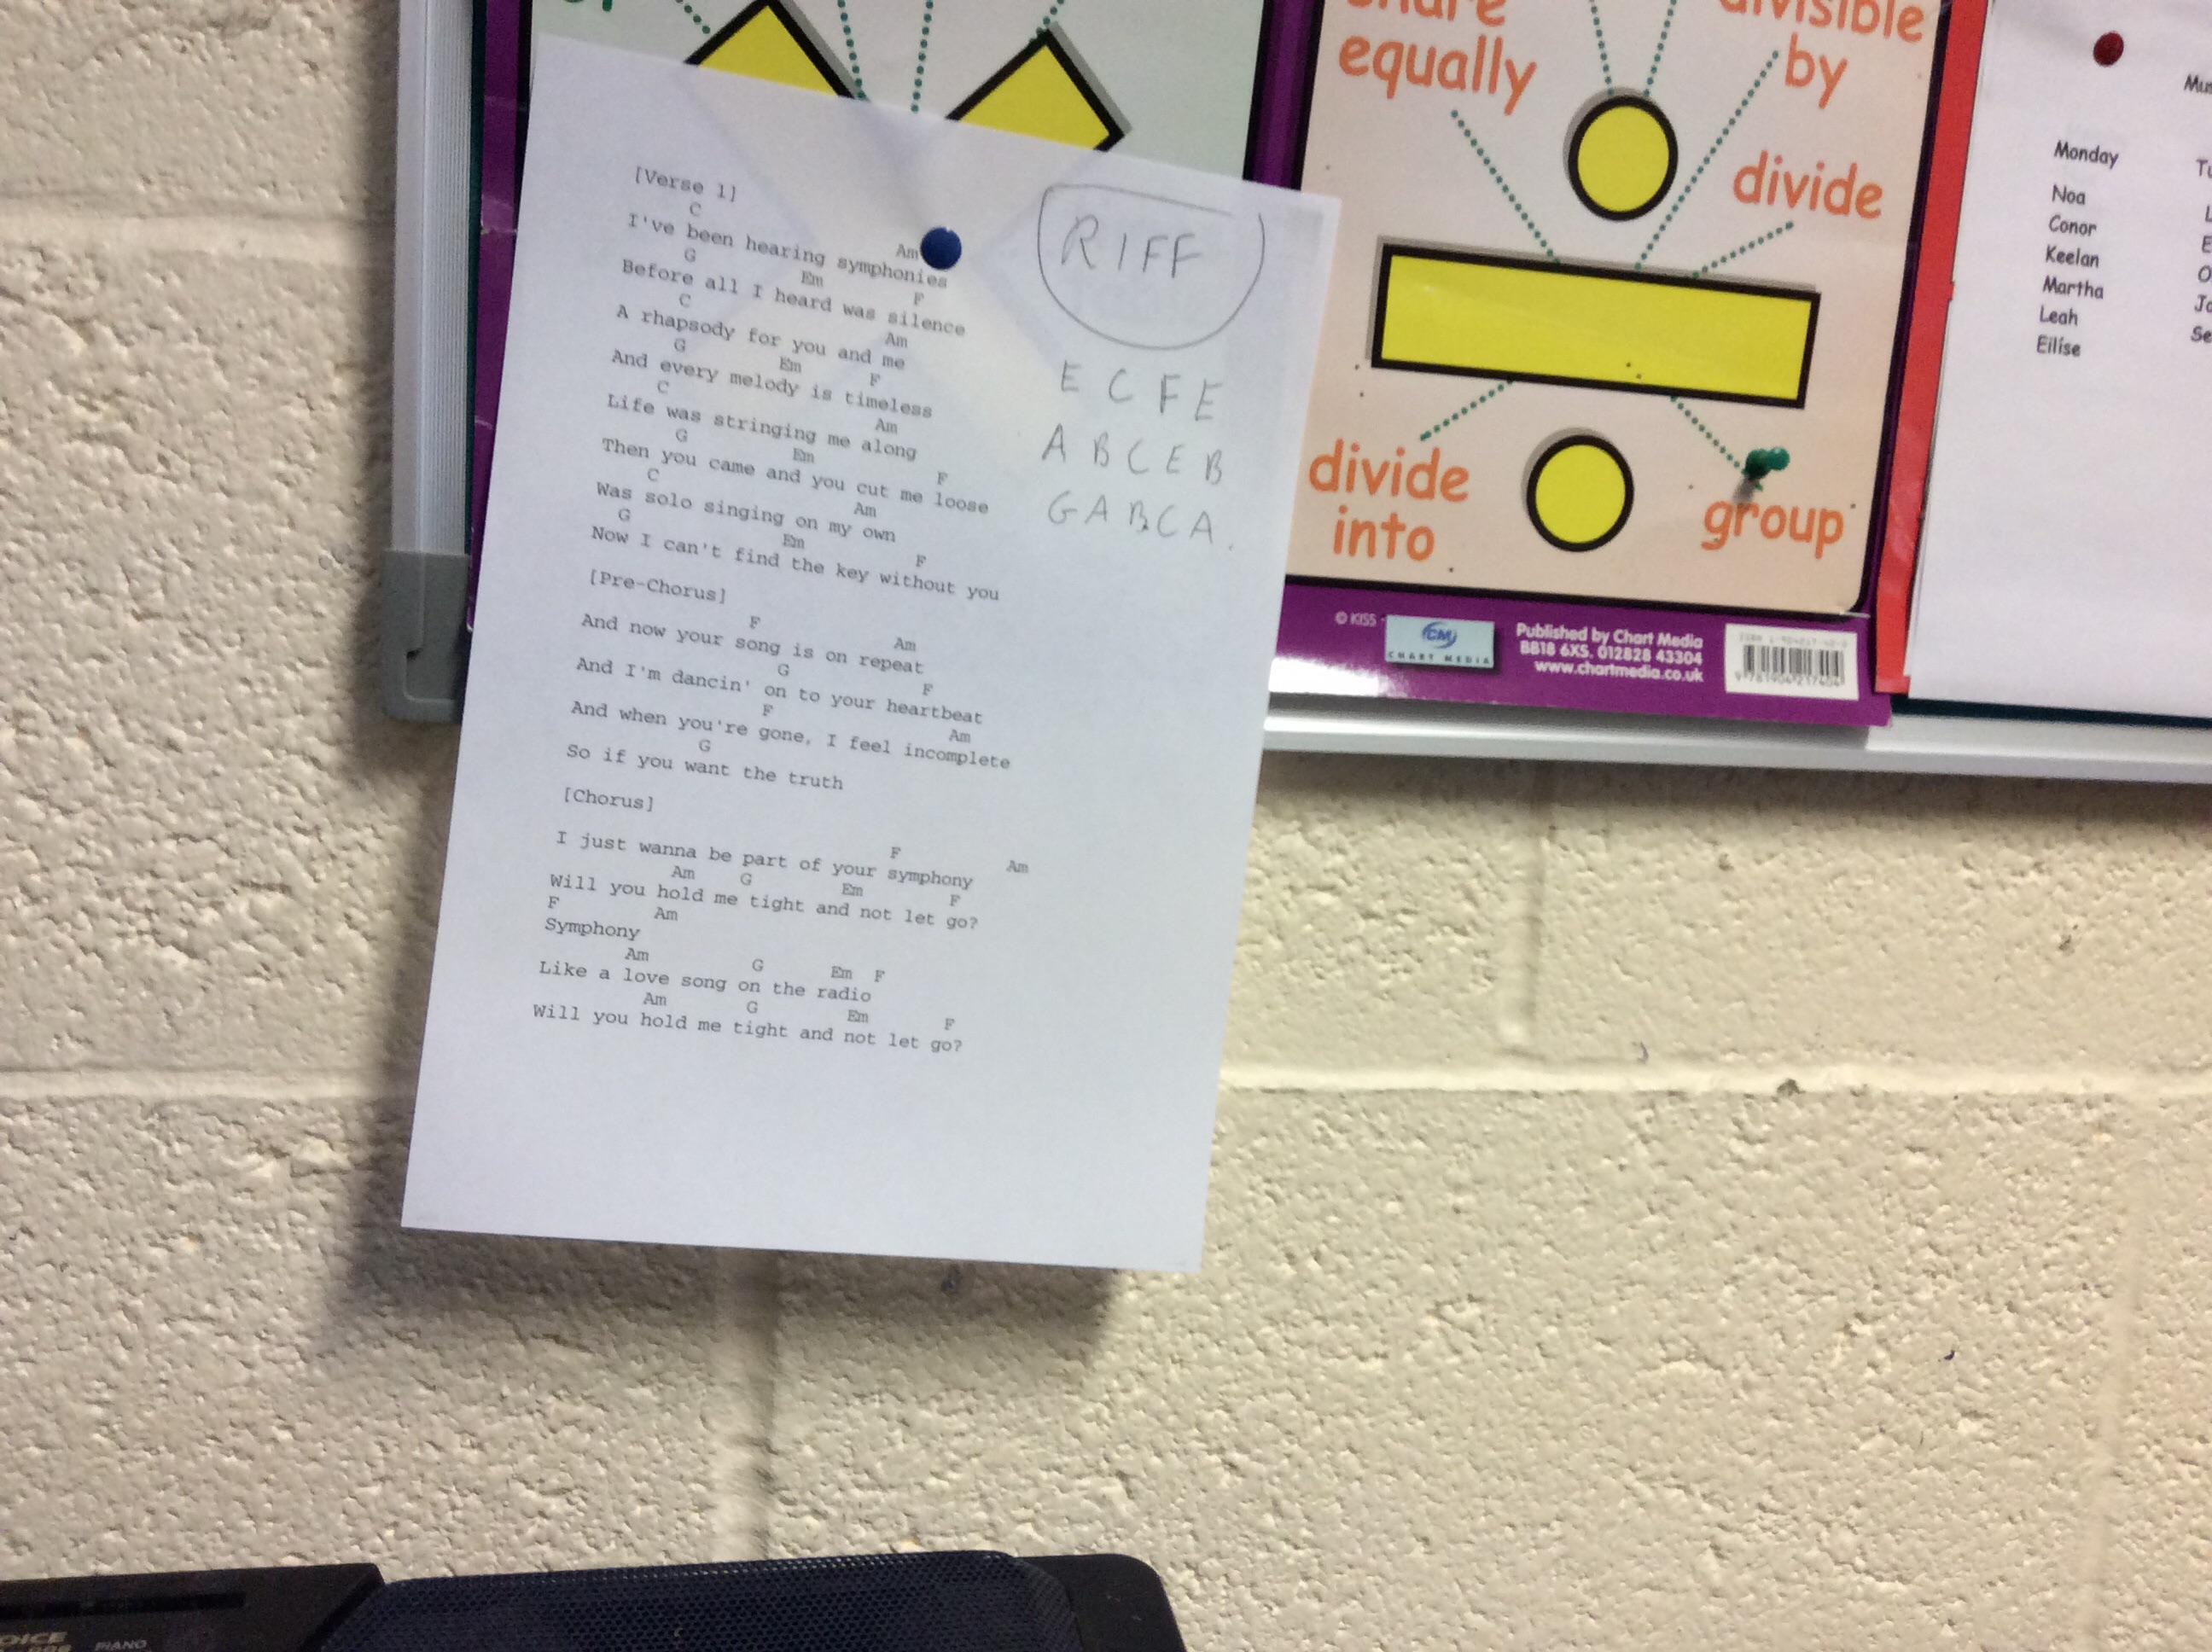 [Verse 1]
C Am
I've been hearing symphonies
G Em F
Before all I heard was silence
C Am
A rhapsody for you and me
G Em F
And every melody is timeless
C Am
Life was stringing me along
G Em F
Then you came and you cut me loose
C Am
Was solo singing on my own
G Em F
Now I can't find the key without you
[Pre-Chorus]
F Am
And now your song is on repeat
G F
And I'm dancin' on to your heartbeat
F Am
And when you're gone, I feel incomplete
G
So if you want the truth
[Chorus]
F Am
I just wanna be part of your symphony
Am G Em F
Will you hold me tight and not let go?
F Am
Symphony
Am G Em F
Like a love song on the radio
Am G Em F
Will you hold me tight and not let go?
RIFF
E C F E
A B C E B
G A B C A.
share
equally
divisible
by
divide
divide
into
group
© KISS
CM
CHART MEDIA
Published by Chart Media
BB18 6XS. 012828 43304
www.chartmedia.co.uk
9781904217404
Monday
Noa
Conor
Keelan
Martha
Leah
Eilíse
PIANO